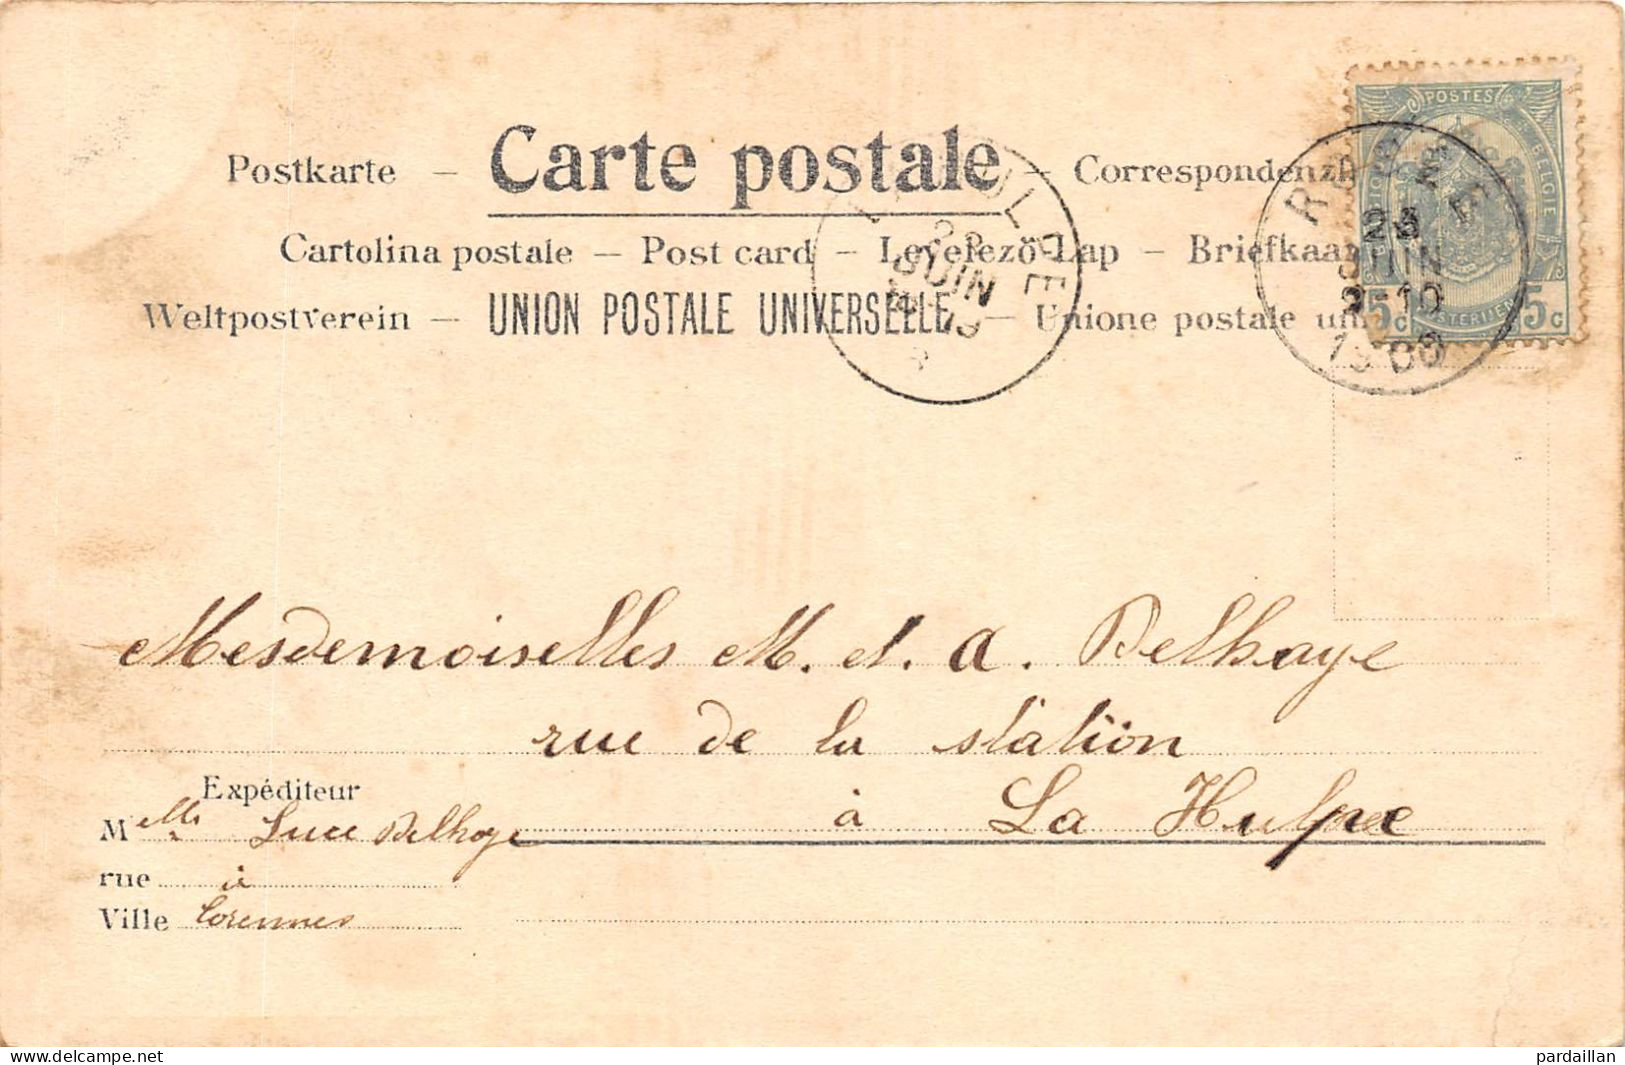 Postkarte – Carte postale – Correspondenzk
Cartolina postale – Post card – Levelező-Lap – Briefkaar
Weltpostverein – UNION POSTALE UNIVERSELLE – Unione postale uni
POSTES
BELGIE
5c 5c
23
JUIN
9-10
JUIN
Mesdemoiselles M. et. A. Delhaye
rue de la station
à La Hulpe
Expéditeur
Melle Luce Delhaye
rue à
Ville Corennes
delcampe.net
pardaillan